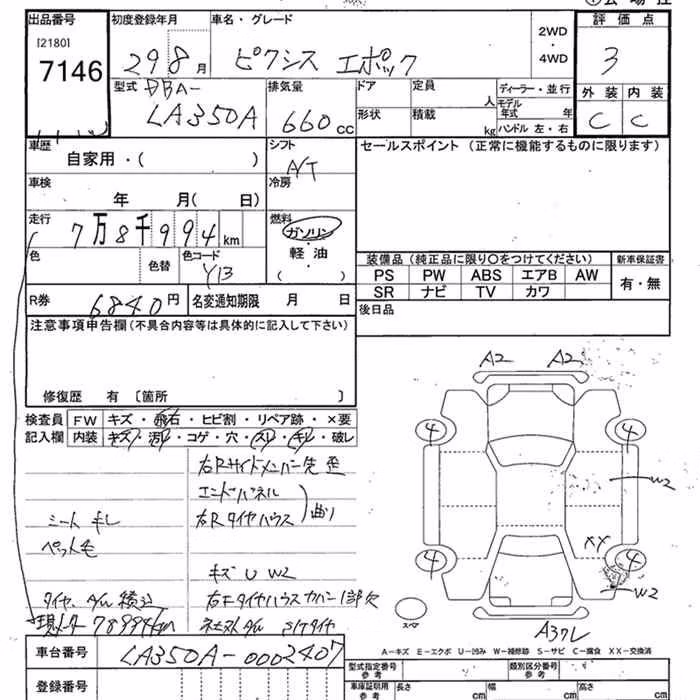 出品番号 初度登録年月 車名・グレード 2WD・4WD 評価点
[2180]
7146 29 8月 ピクシス エポック 3
型式 DBA-LA350A 排気量 660cc ドア 定員 人 ディーラー・並行 外装 内装
形状 積載 kg モデル年式 年 C C
ハンドル 左・右
車歴 自家用・( ) シフト A/T セールスポイント(正常に機能するものに限ります)
車検 年 月( 日) 冷房
走行 7万8千994km 燃料 ガソリン・軽油・( )
色 色替 色コード Y13 装備品(純正品に限り○をつけてください) 新車保証書
PS PW ABS エアB AW 有・無
SR ナビ TV カワ
R券 6840円 名変通知期限 月 日 後日品
注意事項申告欄(不具合内容等は具体的に記入して下さい)
修復歴 有 〔箇所 〕
A2 A2
検査員記入欄 FW キズ・飛石・ヒビ割・リペア跡・×要
内装 キズ・汚れ・コゲ・穴・スレ・キレ・破レ
4 4
右Rサイドメンバー先 歪
エンドパネル
W2
シート キレ 右Rタイヤハウス 曲り
ペット毛 XX
キズ U W2 4 4
タイヤ、A/W 積込 右Fタイヤハウスカバー1部欠 W2
現メーター 78994km ネセストA/W S/Tタイヤ スペア
A3 7L
車台番号 LA350A-0002407 A-キズ E-エクボ U-凹み W-補修跡 S-サビ C-腐食 XX-交換済
登録番号 型式指定番号 参考 類別区分番号 参考
車庫証明用 参考 長さ cm 幅 cm 高さ cm